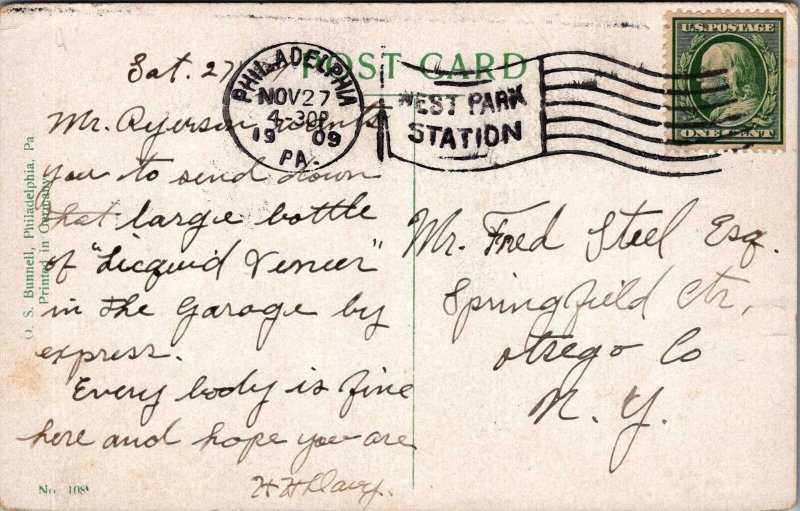 POST CARD
U.S. POSTAGE
ONE CENT
PHILADELPHIA
NOV 27
4-30P
19 09
PA.
WEST PARK
STATION
Sat. 27
Mr. Ryerson wants
you to send down
that large bottle
of "Licquid Veneer"
in the Garage by
express.
Every body is fine
here and hope you are
Mr. Fred Steel Esq.
Springfield Ctr,
otsego Co
N. Y.
O. S. Bunnell, Philadelphia, Pa
Printed in Germany
No. 108